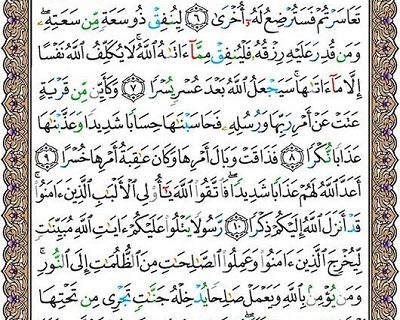 تَعَاسَرْتُمْ فَسَتُرْضِعُ لَهُۥٓ أُخْرَىٰ ۝٦ لِيُنفِقْ ذُو سَعَةٍ مِّن سَعَتِهِۦ ۖ
وَمَن قُدِرَ عَلَيْهِ رِزْقُهُۥ فَلْيُنفِقْ مِمَّآ ءَاتَىٰهُ ٱللَّهُ ۚ لَا يُكَلِّفُ ٱللَّهُ نَفْسًا
إِلَّا مَآ ءَاتَىٰهَا ۚ سَيَجْعَلُ ٱللَّهُ بَعْدَ عُسْرٍ يُسْرًا ۝٧ وَكَأَيِّن مِّن قَرْيَةٍ
عَتَتْ عَنْ أَمْرِ رَبِّهَا وَرُسُلِهِۦ فَحَاسَبْنَٰهَا حِسَابًا شَدِيدًا وَعَذَّبْنَٰهَا
عَذَابًا نُّكْرًا ۝٨ فَذَاقَتْ وَبَالَ أَمْرِهَا وَكَانَ عَٰقِبَةُ أَمْرِهَا خُسْرًا ۝٩
أَعَدَّ ٱللَّهُ لَهُمْ عَذَابًا شَدِيدًا ۖ فَٱتَّقُوا۟ ٱللَّهَ يَٰٓأُو۟لِى ٱلْأَلْبَٰبِ ٱلَّذِينَ ءَامَنُوا۟ ۚ
قَدْ أَنزَلَ ٱللَّهُ إِلَيْكُمْ ذِكْرًا ۝١٠ رَّسُولًا يَتْلُوا۟ عَلَيْكُمْ ءَايَٰتِ ٱللَّهِ مُبَيِّنَٰتٍ
لِّيُخْرِجَ ٱلَّذِينَ ءَامَنُوا۟ وَعَمِلُوا۟ ٱلصَّٰلِحَٰتِ مِنَ ٱلظُّلُمَٰتِ إِلَى ٱلنُّورِ ۚ
وَمَن يُؤْمِنۢ بِٱللَّهِ وَيَعْمَلْ صَٰلِحًا يُدْخِلْهُ جَنَّٰتٍ تَجْرِى مِن تَحْتِهَا